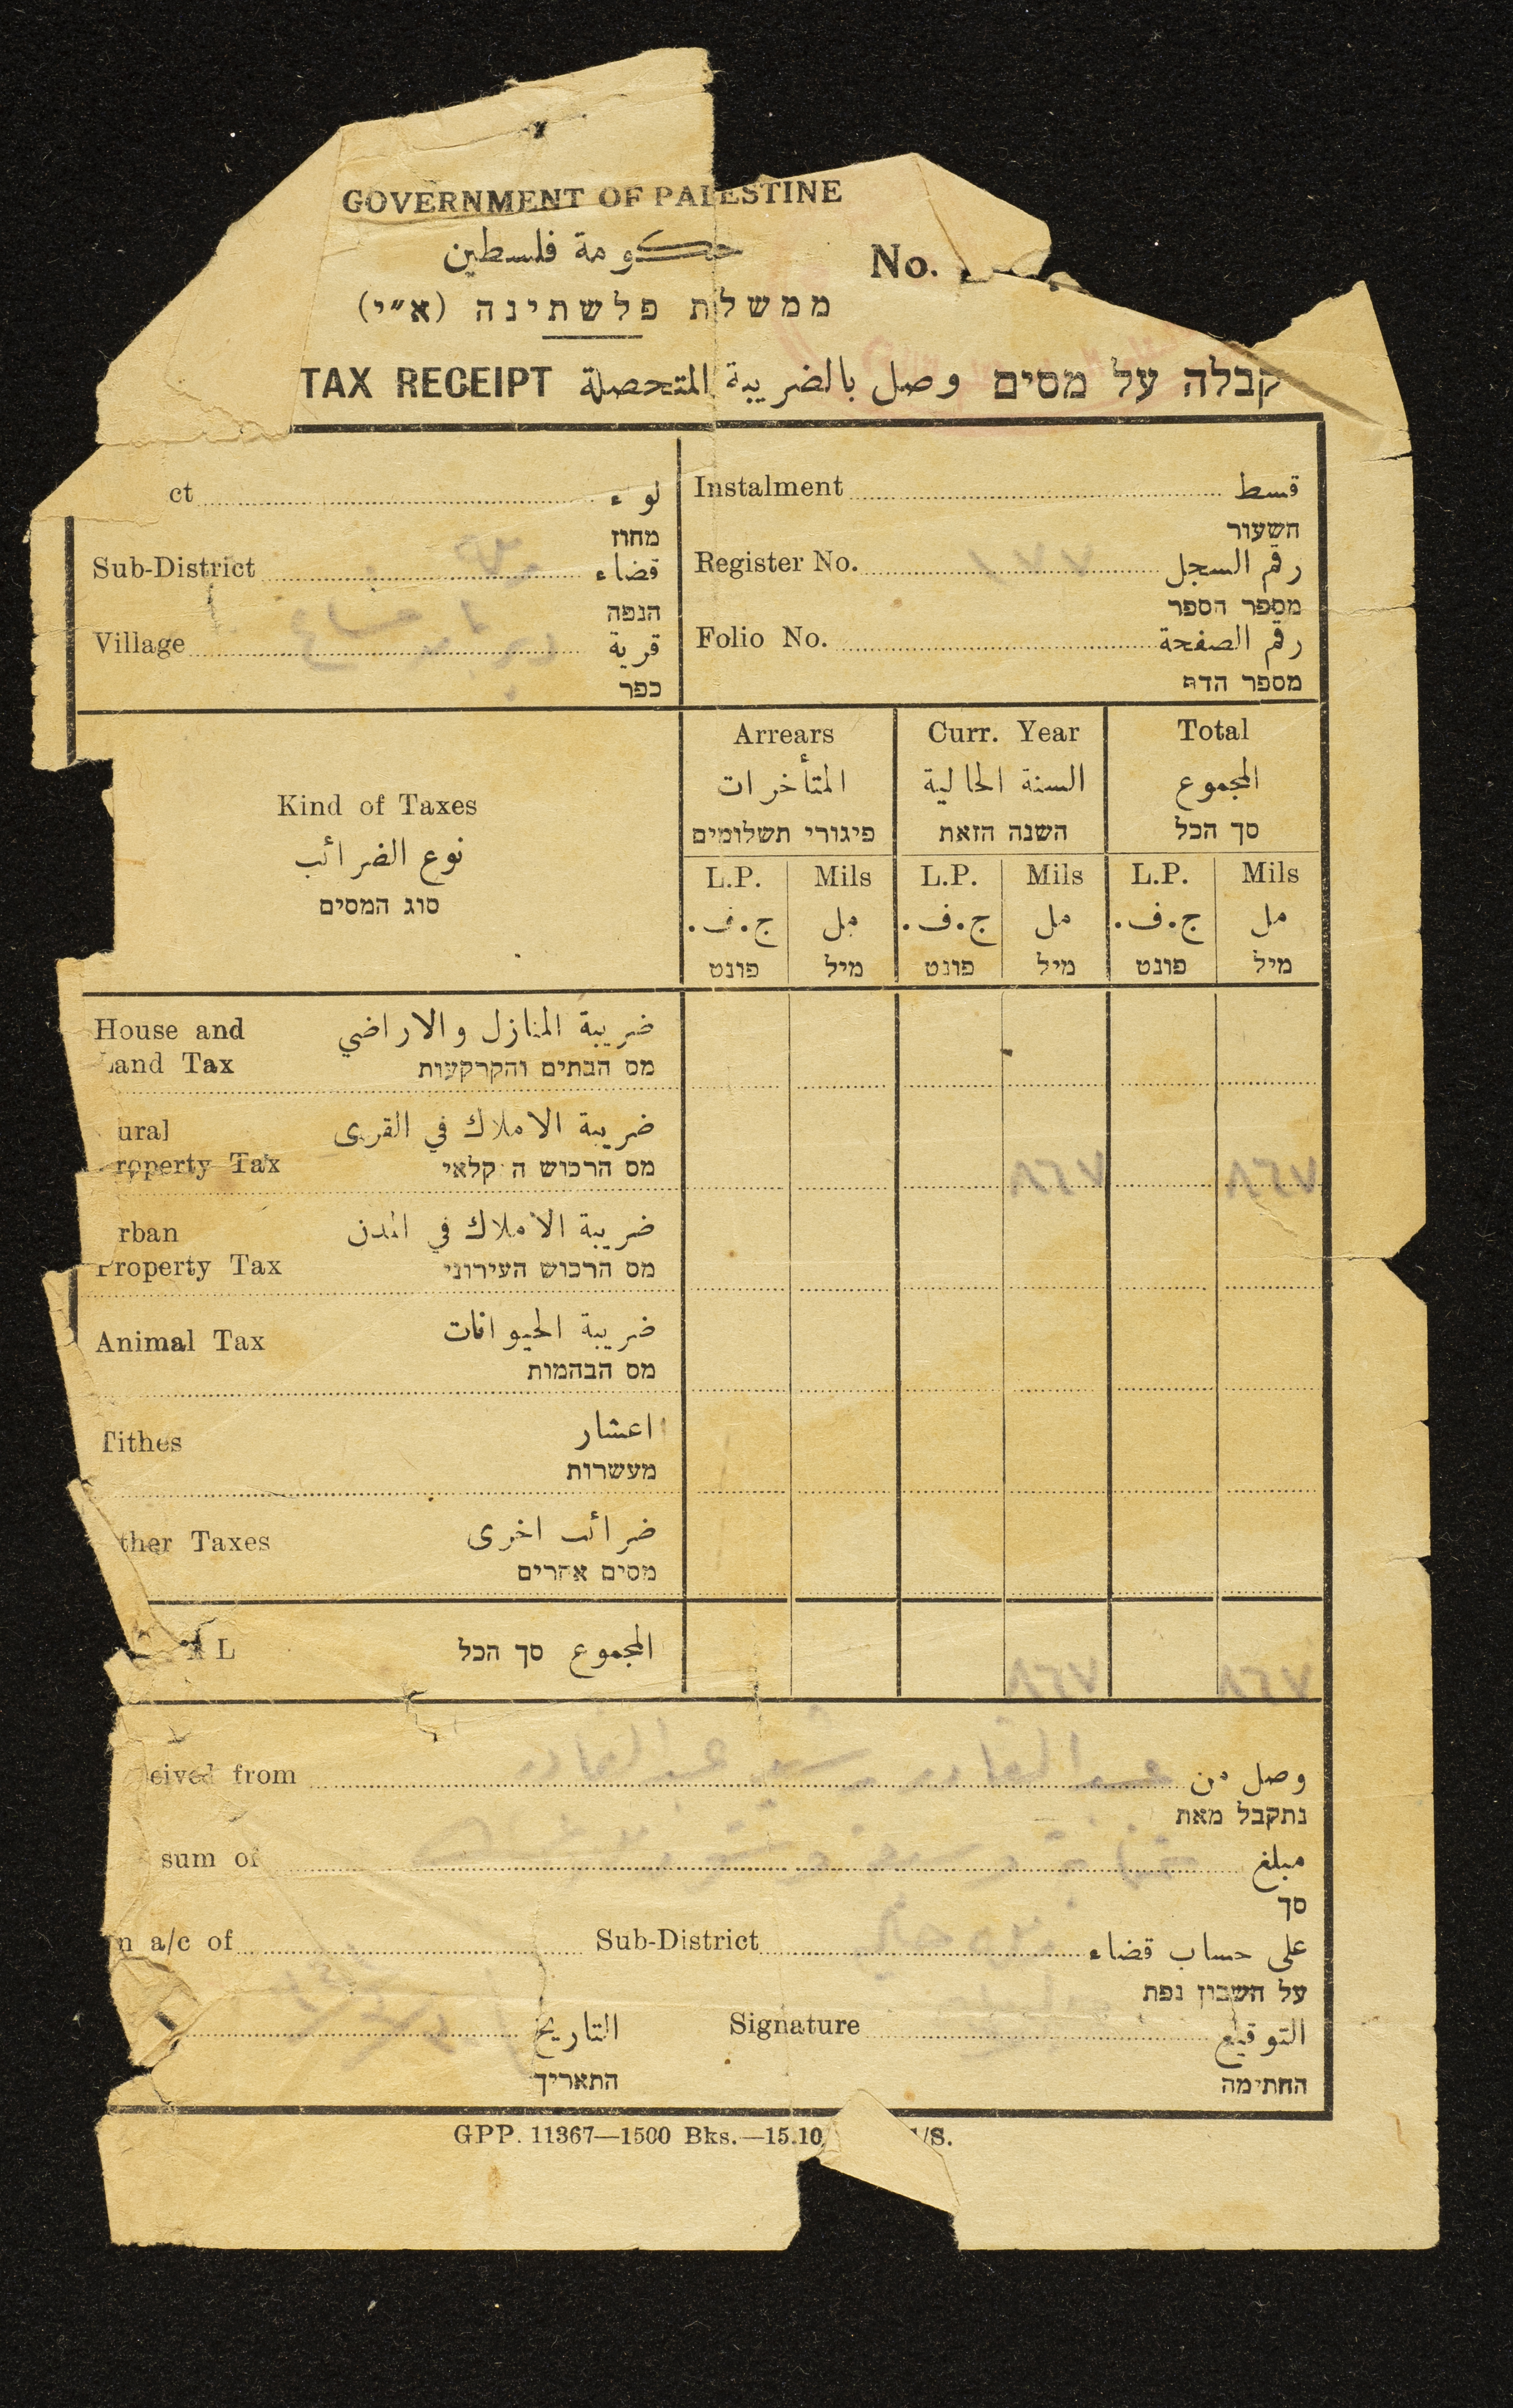 GOVERNMENT OF PALESTINE
حكومة فلسطين
No.
ממשלת פלשתינה (א״י)
TAX RECEIPT وصل بالضريبة المتحصلة קבלה על מסים
ct لواء
מחוז
Instalment قسط
השעור
Sub-District قضاء
הנפה
Register No. ١٧٧ رقم السجل
מספר הספר
Village قرية
כפר
Folio No. رقم الصفحة
מספר הדף
Kind of Taxes
نوع الضرائب
סוג המסים
Arrears Curr. Year Total
المتأخرات السنة الحالية المجموع
פיגורי תשלומים השנה הזאת סך הכל
L.P. Mils L.P. Mils L.P. Mils
ج.ف. مل ج.ف. مل ج.ف. مل
פונט מיל פונט מיל פונט מיל
House and ضريبة المنازل والاراضي
Land Tax מס הבתים והקרקעות
ural ضريبة الاملاك في القرى
roperty Tax מס הרכוש החקלאי ٨٦٧ ٨٦٧
rban ضريبة الاملاك في المدن
Property Tax מס הרכוש העירוני
Animal Tax ضريبة الحيوانات
מס הבהמות
Tithes اعشار
מעשרות
ther Taxes ضرائب اخرى
מסים אחרים
A L المجموع סך הכל ٨٦٧ ٨٦٧
eived from عبد القادر عبد القادر وصل من
נתקבל מאת
sum of مبلغ
סך
n a/c of Sub-District على حساب قضاء
על חשבון נפת
التاريخ Signature التوقيع
התאריך החתימה
GPP. 11367—1500 Bks.—15.10 /S.